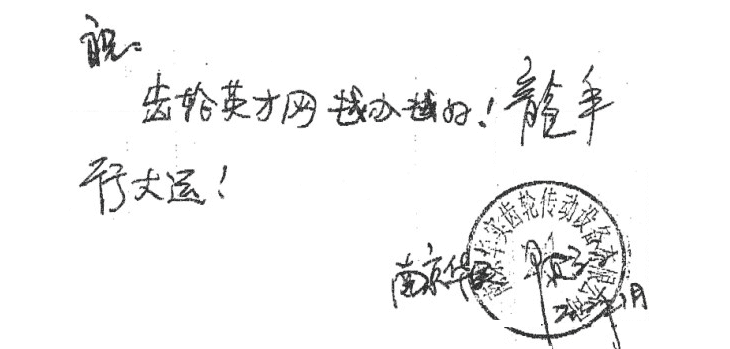 祝:
齿轮英才网越办越好！龍年
行大运！
南京华
实齿轮传动设备有限公司
月